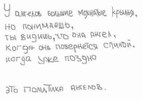 У ангелов большие мощные крылья,
но понимаешь,
ты видишь, что она ангел,
когда она повернётся спиной,
когда уже поздно
это политика ангелов.